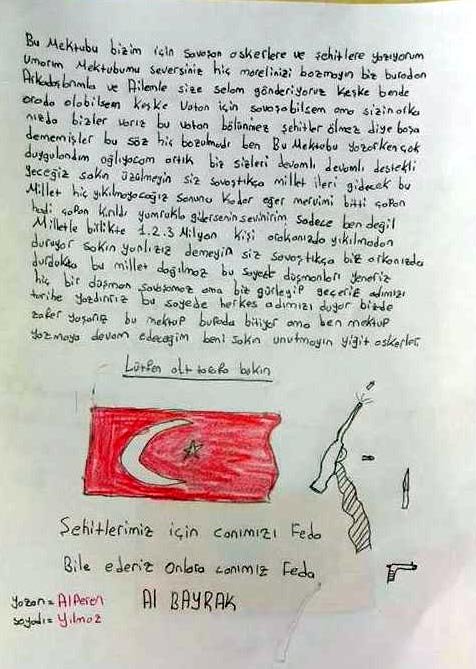 Bu Mektubu bizim için savaşan askerlere ve şehitlere yazıyorum
Umarım Mektubumu seversiniz hiç morelinizi bozmayın biz buradan
Arkadaşlarımla ve Ailemle size selam gönderiyoruz Keşke bende
orada olabilsem Keşke Vatan için savaşabilsem ama sizin arka
nızda bizler varız bu vatan bölünmez şehitler ölmez diye boşa
dememişler bu söz hiç bozulmadı ben Bu Mektubu yazarken çok
duygulandım ağlıyacam artık biz sizleri devamlı devamlı destekli
yeceğiz sakın üzülmeyin siz savaştıkça millet ileri gidecek bu
Millet hiç yıkılmayacağız sonuna Kadar eğer mervimi bitti çapan
hadi çapan kırıldı yumrukla gidersenin sevinirim sadece ben değil
Milletle birlikte 1.2.3 Milyon Kişi arkanızda yıkılmadan
duruyor sakın yanlızız demeyin siz savaştıkça biz arkanızda
durdukça bu millet dağılmaz bu sayede düşmanları yeneriz
hiç bir düşman savaşamaz ama biz gürleyip geçeriz adımızı
tarihe yazdırırız bu sayede herkes adımızı duyar bizde
zafer yaşarız bu mektup burada bitiyor ama ben mektup
yazmaya devam edeceğim beni sakın unutmayın yiğit askerler
Lütfen alt tarafa bakın
Şehitlerimiz için canımızı Feda
Bile ederiz Onlara canımız Feda
yazan= Alperen Al BAYRAK
soyadı= Yılmaz